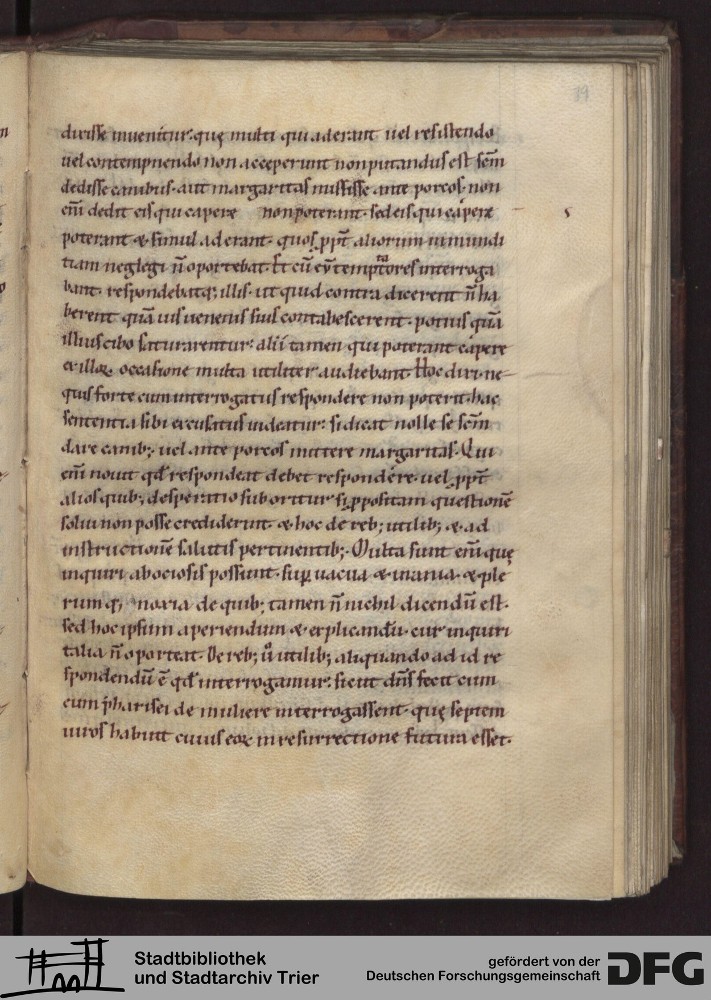 39
dixisse inuenitur. quę multi qui aderant uel resistendo
uel contempnendo non acceperunt non putandus est sc̄m
dedisse canibus. aut margaritas misisse ante porcos. non
eni͂ dedit eis qui capere non poterant. sed eis qui capere
poterant & simul aderant. quos ꝓpt̄ aliorum inmundi
tiam neglegi n̄ oportebat. Et cū eū temptatores interroga
bant. respondebatq; illis. ut quid contra dicerent n̄ ha
berent quāuis uenenis suis contabescerent. potius quā
illius cibo saturarentur. alii tamen qui poterant capere
ex illoꝝ occasione multa utiliter audiebant. Hoc dixi. ne
quis forte cum interrogatus respondere non poterit. hac
sententia sibi excusatus uideatur. si dicat nolle se sc̄m
dare canib; uel ante porcos mittere margaritas. Qui
eni͂ nouit qd̄ respondeat debet respondere. uel ꝓpt̄
alios quib; desperatio suboritur si ꝓpositam questionē
solui non posse crediderint. & hoc de reb; utilib; & ad
instructionē salutis pertinentib;. Multa sunt eni͂ quę
inquiri ab ociosis possunt. suꝑuacua & inania. & ple
rumq; noxia de quib; tamen n̄ nichil dicendū est.
sed hoc ipsum aperiendum & explicandū. cur inquiri
talia n̄ oporteat. De reb; ů utilib; aliquando ad id re
spondendū ē qd̄ interrogamur. sicut dn̄s fecit cum
eum pharisei de muliere interrogassent. quę septem
uiros habuit cuius eoꝝ in resurrectione futura esset.
Stadtbibliothek
und Stadtarchiv Trier
gefördert von der
Deutschen Forschungsgemeinschaft
DFG